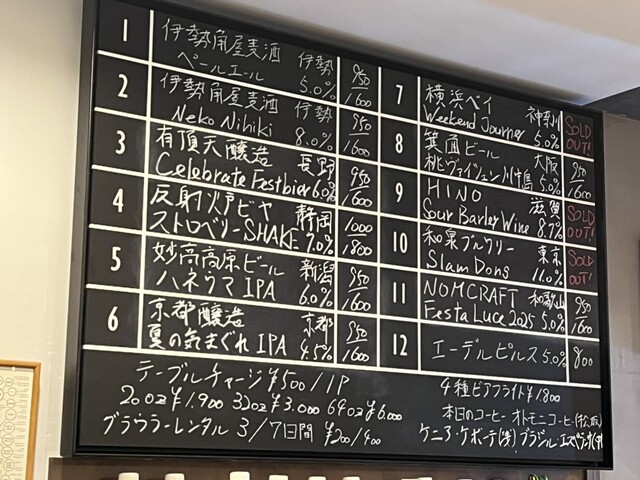 1 伊勢角屋麦酒 伊勢 950
ペールエール 5.0% 1600
2 伊勢角屋麦酒 伊勢 950
Neko Nihiki 8.0% 1600
3 有頂天醸造 長野 950
Celebrate Festbier 6.0% 1600
4 反射炉ビヤ 静岡 1000
ストロベリーSHAKE 7.0% 1800
5 妙高高原ビール 新潟 950
ハネウマ IPA 6.0% 1600
6 京都醸造 京都 950
夏の気まぐれ IPA 4.5% 1600
7 横浜ベイ 神奈川 SOLD
Weekend Journey 5.0% OUT!
8 箕面ビール 大阪 950
桃ヴァイツェン 5.0% 1600
9 HINO 滋賀 SOLD
Sour Barley Wine 8.7% OUT!
10 和泉ブルワリー 東京 SOLD
Slam Dons 11.0% OUT!
11 NOMCRAFT 和歌山 950
Festa Luce 2025 5.0% 1600
12 エーデルピルス 5.0% 800
テーブルチャージ ¥500/1P
20oz ¥1.900 32oz ¥3.000 64oz ¥6.000
グラウラーレンタル 3/7日間 ¥200/400
4種ビアフライト ¥1800
本日のコーヒー オトモニコーヒー(松阪)
ケニア・ケボーテ ブラジル・エスペランサ